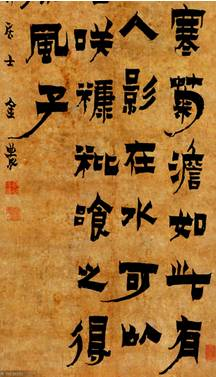 寒菊澹如此有
人影在水可以
咲糠粃喰之得
風子
士金農